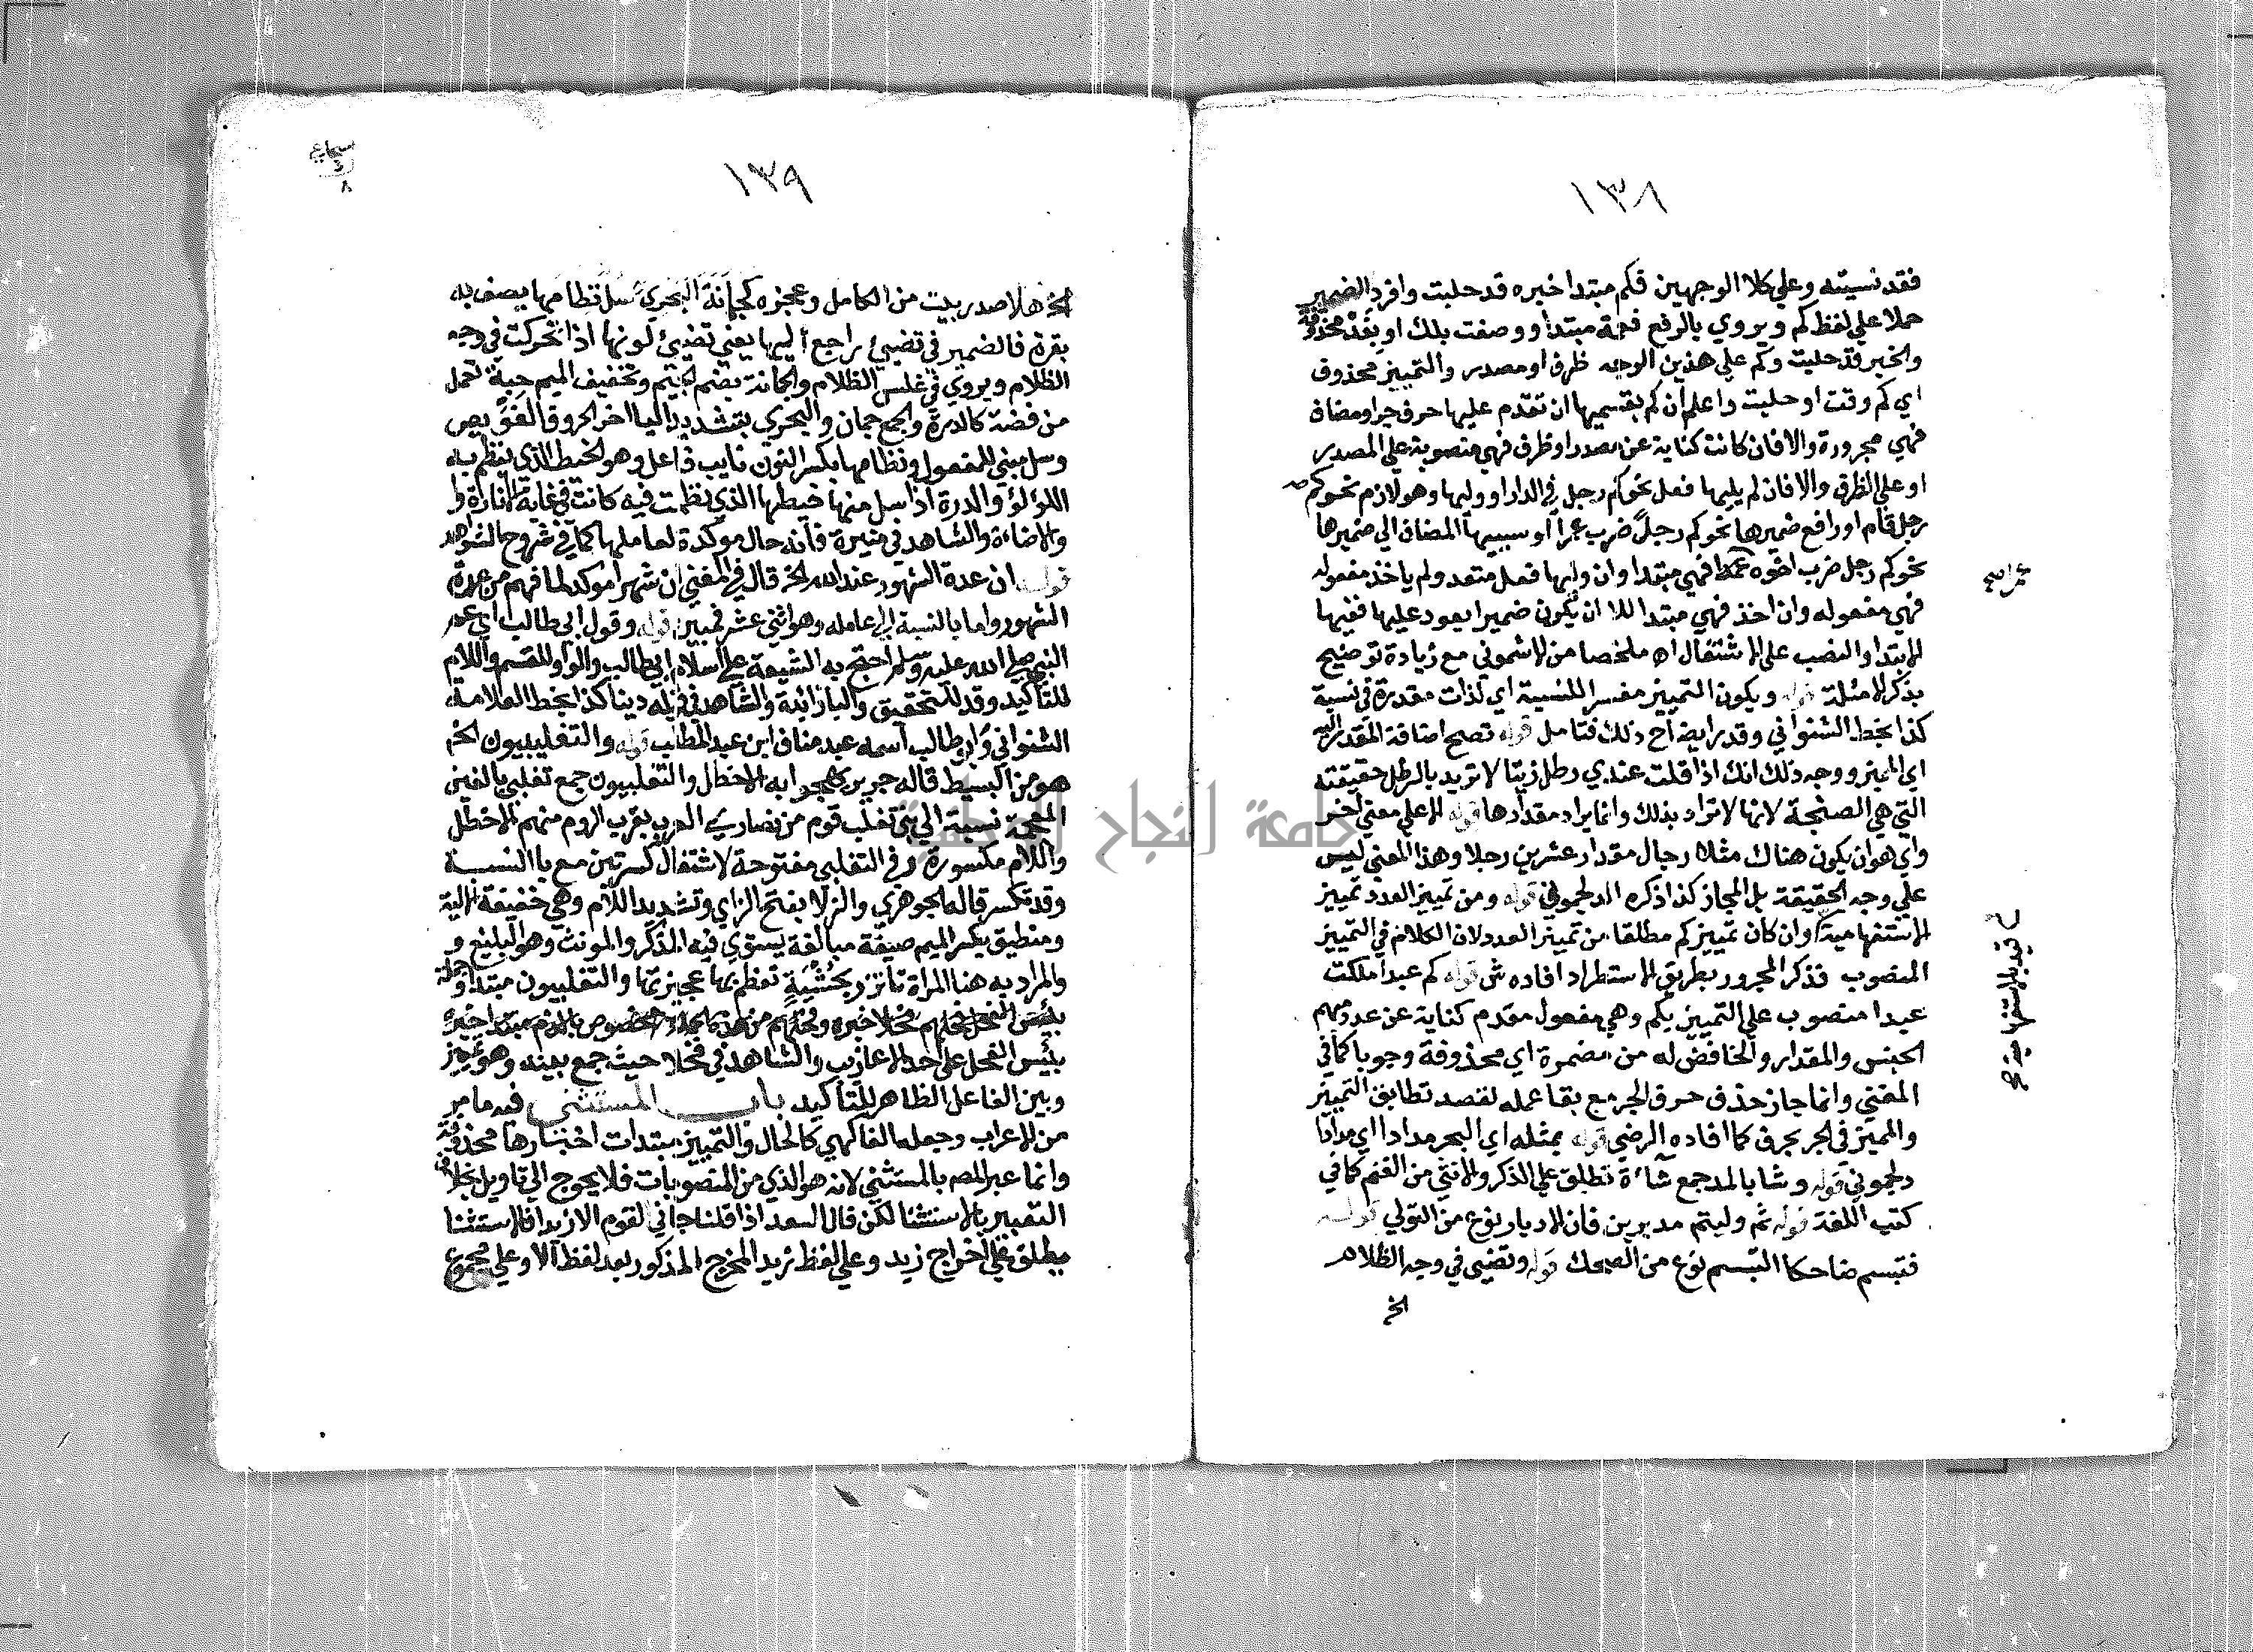 ١٣٨
فقد نسيته وعلي كلا الوجهين فكم مبتدا خبره قد حلبت وافرد الضمير
حملا علي لفظ كم ويروي بالرفع فعمة مبتدا ووصفت بلك او بفد محذوفة
والخبر قد حلبت وكم علي هذين الوجه ظرف او مصدر والتمييز محذوف
اي كم وقت او حلبت واعلم ان كم بقسميها ان تقدم عليها حرف جر او مضاف
فهي مجرورة والا فان كانت كناية عن مصدر او ظرف فهي منصوبة علي المصدر
او علي الظرف والا فان لم يليها فعل نحو كم رجل في الدار او وليها وهو لازم نحو كم
رجل قام او رافع ضميرها نحو كم رجل ضرب عمرا او سببيها المضاف الي ضميرها
نحو كم رجل ضرب اخوه عمرا فهي مبتدا وان وليها فعل متعد ولم ياخذ مفعوله
فهي مفعوله وان اخذ فهي مبتدا الا ان يكون ضميرا يعود عليها ففيها
الابتدا والنصب علي الاشتغال اه ملخصا من الاشموني مع زيادة توضيح
بذكر الامثلة قوله ويكون التمييز مفسرا للنسبة اي لذات مقدرة في نسبة
كذا بخط الشنواني وقد رايضاح ذلك فتامل قوله تصح اضافة المقدر اليه
اي المميز ووجه ذلك انك اذا قلت عندي رطل زيتا لا تريد بالرطل حقيقته
التي هي الصنجة لانها لا تراد بذلك وانما يراد مقدارها قوله الا علي معني اخر
واي هو ان يكون هناك مثلا رجال مقدار عشرين رجلا وهذا المعني ليس
علي وجه الحقيقة بل المجاز كذا ذكره الدلجموني قوله ومن تمييز العدد تمييز
الاستفهامية وان كان تمييز كم مطلقا من تمييز العدد لان الكلام في التمييز
المنصوب فذكر المجرور بطريق الاستطراد افاده ش قوله كم عبدا ملكت
عبدا منصوب علي التمييز بكم وهي مفعول مقدم كناية عن عدد مبهم
الجنس والمقدار والخافض له من مضمرة اي محذوفة وجوبا كما في
المغني وانما جاز حذف حرف الجر مع بقا عمله لقصد تطابق التمييز
والمميز في الجر بحرف كما افاده الرضي قوله بمثله اي البحر مدادا اي مدادا
دلجموني قوله وشا بالمد جمع شاة تطلق علي الذكر والانثي من الغنم كما في
كتب اللغة قوله ثم وليتم مدبرين فان الادبار نوع من التولي قوله
فتبسم ضاحكا التبسم نوع من الضحك قوله وتضيي في وجه الظلام
الخ
عمرا صح
قيد بالاستفهامية
١٣٩
الخ هذا صدر بيت من الكامل وعجزه كجمانة البحري سل نظامها يصف به
بقرة فالضمير في تضيئ راجع اليها يعني تضيئ لونها اذا تحركت في وجه
الظلام ويروي في غلس الظلام والجمانة بضم الجيم وتخفيف الميم حبة تعمل
من فضة كالدرة والجمع جمان والبحري بتشديد اليا اخر الحروف الغواص
وسل مبني للمفعول ونظامها بكسر النون نايب فاعل وهو الخيط الذي ينظم به
اللؤلؤ والدرة اذا سل منها خيطها الذي نظمت فيه كانت في غاية الانارة
والاضاءة والشاهد في منيرة فانه حال موكدة لعاملها كما في شروح الشواهد
قوله ان عدة الشهور عند الله الخ قال في المغني ان شهرا موكد لما فهم من عدة
الشهور واما بالنسبة الي عامله وهو اثني عشر فمبين قوله وقول ابي طالب اي عم
النبي صلي الله عليه وسلم احتج به الشيعة علي اسلام ابي طالب والواو للقسم واللام
للتاكيد وقد للتحقيق والبا زايدة والشاهد في قوله دينا كذا بخط العلامة
الشنواني وابو طالب اسمه عبد مناف ابن عبد المطلب قوله والتغلبيون الخ
هو من البسيط قاله جرير يهجوا به الاخطل والتغلبيون جمع تغلبي بالغين
المعجمة نسبة الي بني تغلب قوم من نصاري العرب بقرب الروم منهم الاخطل
واللام مكسورة وفي التغلبي مفتوحة لاشتغال كسرتين مع يا النسبة
وقد تكسر قاله الجوهري والزلا بفتح الزاي وتشديد اللام وهي خفيفة الالية
ومنطيق بكسر الميم صيغة مبالغة يستوي فيه المذكر والمونث وهو البليغ
والمراد به هنا المراة تاتزر بحشية تعظم بها عجيزتها والتغلبيون مبتدا وجملة
بئيس الفحل فحلهم فحلا خبره وفحلهم من هذه الجملة المخصوص بالذم مبتدا خبره
بئيس الفحل علي احد الاعاريب والشاهد في فحلا حيث جمع بينه وهو تمييز
وبين الفاعل الظاهر للتاكيد باب المستثني فيه ما مر
من الاعراب وجعله الفاكهي كالحال والتمييز مبتدات اخبارها محذوفة
وانما عبر المص بالمستثني لانه هو الذي من المنصوبات فلا يحوج الي تاويل بخلاف
التعبير بالاستثنا لكن قال السعد اذا قلنا جاني القوم الا زيدا فالاستثنا
يطلق علي اخراج زيد وعلي لفظ زيد المخرج المذكور بعد لفظ الا وعلي مجموع
جامعة النجاح الوطنية